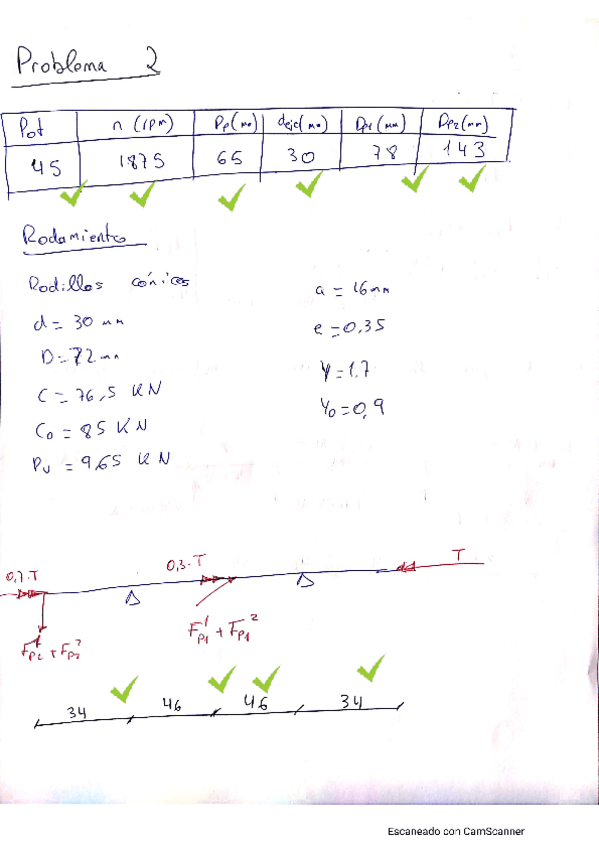 Problema 2
Pot n (rpm) Dp(mm) deje(mm) Dp1(mm) Dp2(mm)
45 1875 65 30 78 143
Rodamiento
Rodillos cónicos
d = 30 mm
D = 72 mm
C = 76,5 KN
C0 = 85 KN
Pu = 9,65 KN
a = 16 mm
e = 0,35
Y = 1.7
Y0 = 0,9
0,7·T 0,3·T T
Fp2¹ + Fp2² Fp1¹ + Fp1²
34 46 46 34
Escaneado con CamScanner